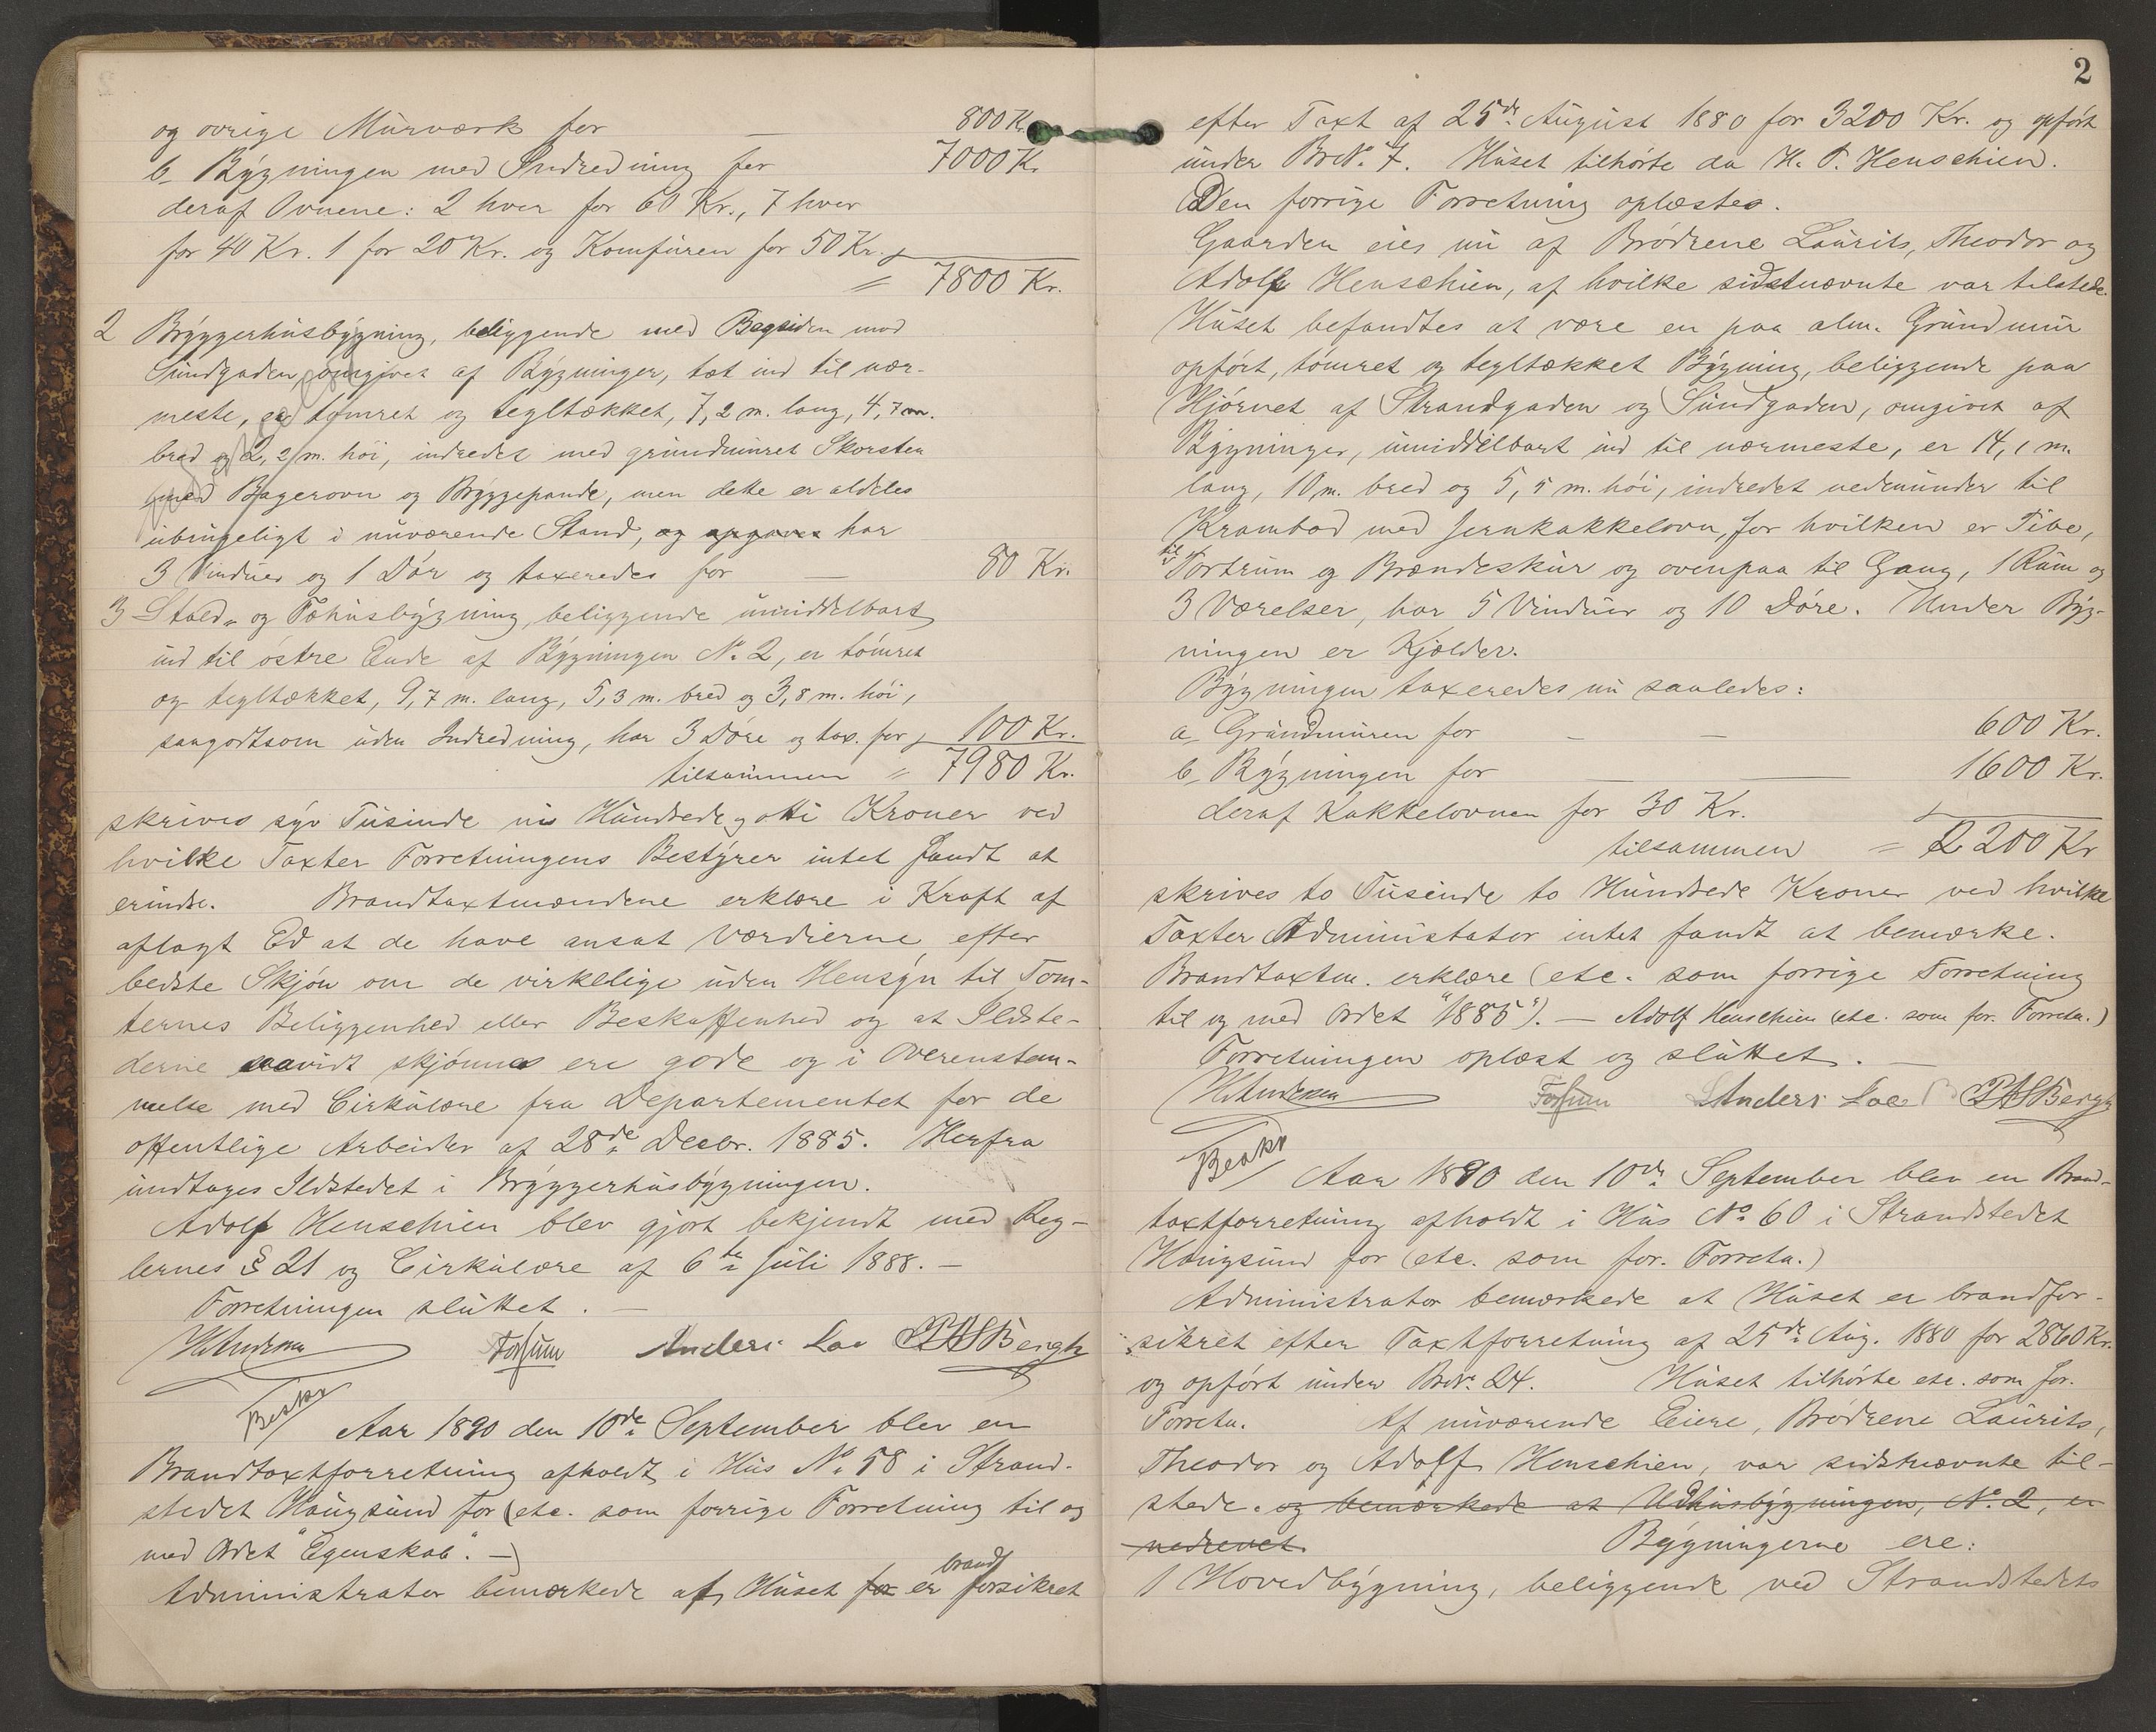 og ovrige Murværk for — 800 Kr.
b, Bygningen med Indredning for 7000 Kr
deraf Ovnene: 2 hver for 60 Kr., 7 hver
for 40 Kr. 1 for 20 Kr. og Komfuren for 50 Kr.
= 7800 Kr.
2 Bryggerhusbygning, beliggende med Bagsiden mod
Sundgaden, omgivet af Bygninger, tæt ind til nær-
meste, er tømret og tegltækket, 7,2 m. lang, 4,7 m.
bred og 2,2 m. høi, indredet med grundmuret Skorsten
med Bagerovn og Bryggepande, men dette er aldeles
ubrugeligt i nuværende Stand, og opgives har
3 Vinduer og 1 Dør og taxeredes for — 80 Kr.
3 Stald- og Fæhusbygning, beliggende umiddelbart
ind til østre Ende af Bygningen No. 2, er tømret
og tegltækket, 9,7 m. lang, 5,3 m. bred og 3,8 m. høi,
saagodtsom uden Indredning, har 3 Døre og tax. for 100 Kr.
tilsammen = 7980 Kr.
skrives syv Tusinde ni Hundrede og otti Kroner ved
hvilke Taxter Forretningens Bestyrer intet fandt at
erindre. Brandtaxtmændene erklære i Kraft af
aflagt Ed at de have ansat Værdierne efter
bedste Skjøn om de virkelige uden Hensyn til Tom-
ternes Beliggenhed eller Beskaffenhed og at Ildste-
derne saavidt skjønnes ere gode og i Overenstem-
melse med Cirkulære fra Departementet for de
offentlige Arbeider af 28de Decbr. 1885. Herfra
undtages Ildstedet i Bryggerhusbygningen.
Adolf Henschien blev gjort bekjendt med Reg-
lernes § 21 og Cirkulære af 6te Juli 1888. —
Forretningen sluttet. —
Fossum Anders Loe P A S Bergh
Beskr
Aar 1890 den 10de September blev en
Brandtaxtforretning afholdt i Hus No. 58 i Strand-
stedet Hougsund for (etc. som forrige Forretning til og
med Ordet "Egenskab". —)
brand
Administrator bemærkede at Huset for er forsikret
2
efter Taxt af 25de August 1880 for 3200 Kr. og opført
under BrNo. 7. Huset tilhørte da H. P. Henschien.
Den forrige Forretning oplæstes.
Gaarden eies nu af Brødrene Laurits, Theodor og
Adolf Henschien, af hvilke sidstnævnte var tilstede.
Huset befandtes at være en paa alm. Grundmur
opført, tømret og tegltækket Bygning, beliggende paa
Hjørnet af Strandgaden og Sundgaden, omgivet af
Bygninger, umiddelbart ind til nærmeste, er 14,1 m.
lang, 10 m. bred og 5,5 m. høi, indredet nedenunder til
Krambod med Jernkakkelovn, for hvilken er Pibe,
til
Portrum og Brændeskur og ovenpaa til Gang, 1 Rum og
3 Værelser, har 5 Vinduer og 10 Døre. Under Byg-
ningen er Kjælder.
Bygningen taxeredes nu saaledes:
a, Grundmuren for — — 600 Kr.
b, Bygningen for — — 1600 Kr.
deraf Kakkelovnen for 30 Kr.
tilsammen = 2200 Kr
skrives to Tusinde to Hundrede Kroner ved hvilke
Taxter Administrator intet fandt at bemærke.
Brandtaxtm. erklære (etc. som forrige Forretning
til og med Ordet "1885"). — Adolf Henschien (etc. som for. Forretn.)
Forretningen oplæst og sluttet. —
Fossum Anders Loe P A S Bergh
Beskr
Aar 1890 den 10de September blev en Brand-
taxtforretning afholdt i Hus No. 60 i Strandstedet
Hougsund for (etc. som for. Forretn.)
Administrator bemærkede at Huset er brandfor-
sikret efter Taxtforretning af 25de Aug. 1880 for 2860 Kr.
og opført under BrNo. 24. Huset tilhørte etc. som for.
Forretn. Af nuværende Eiere, Brødrene Laurits,
Theodor og Adolf Henschien, var sidstnævnte til-
stede. og bemærkede at Udhusbygningen, No. 2, er
nedrevet. Bygningerne ere:
1 Hovedbygning, beliggende ved Strandstedets